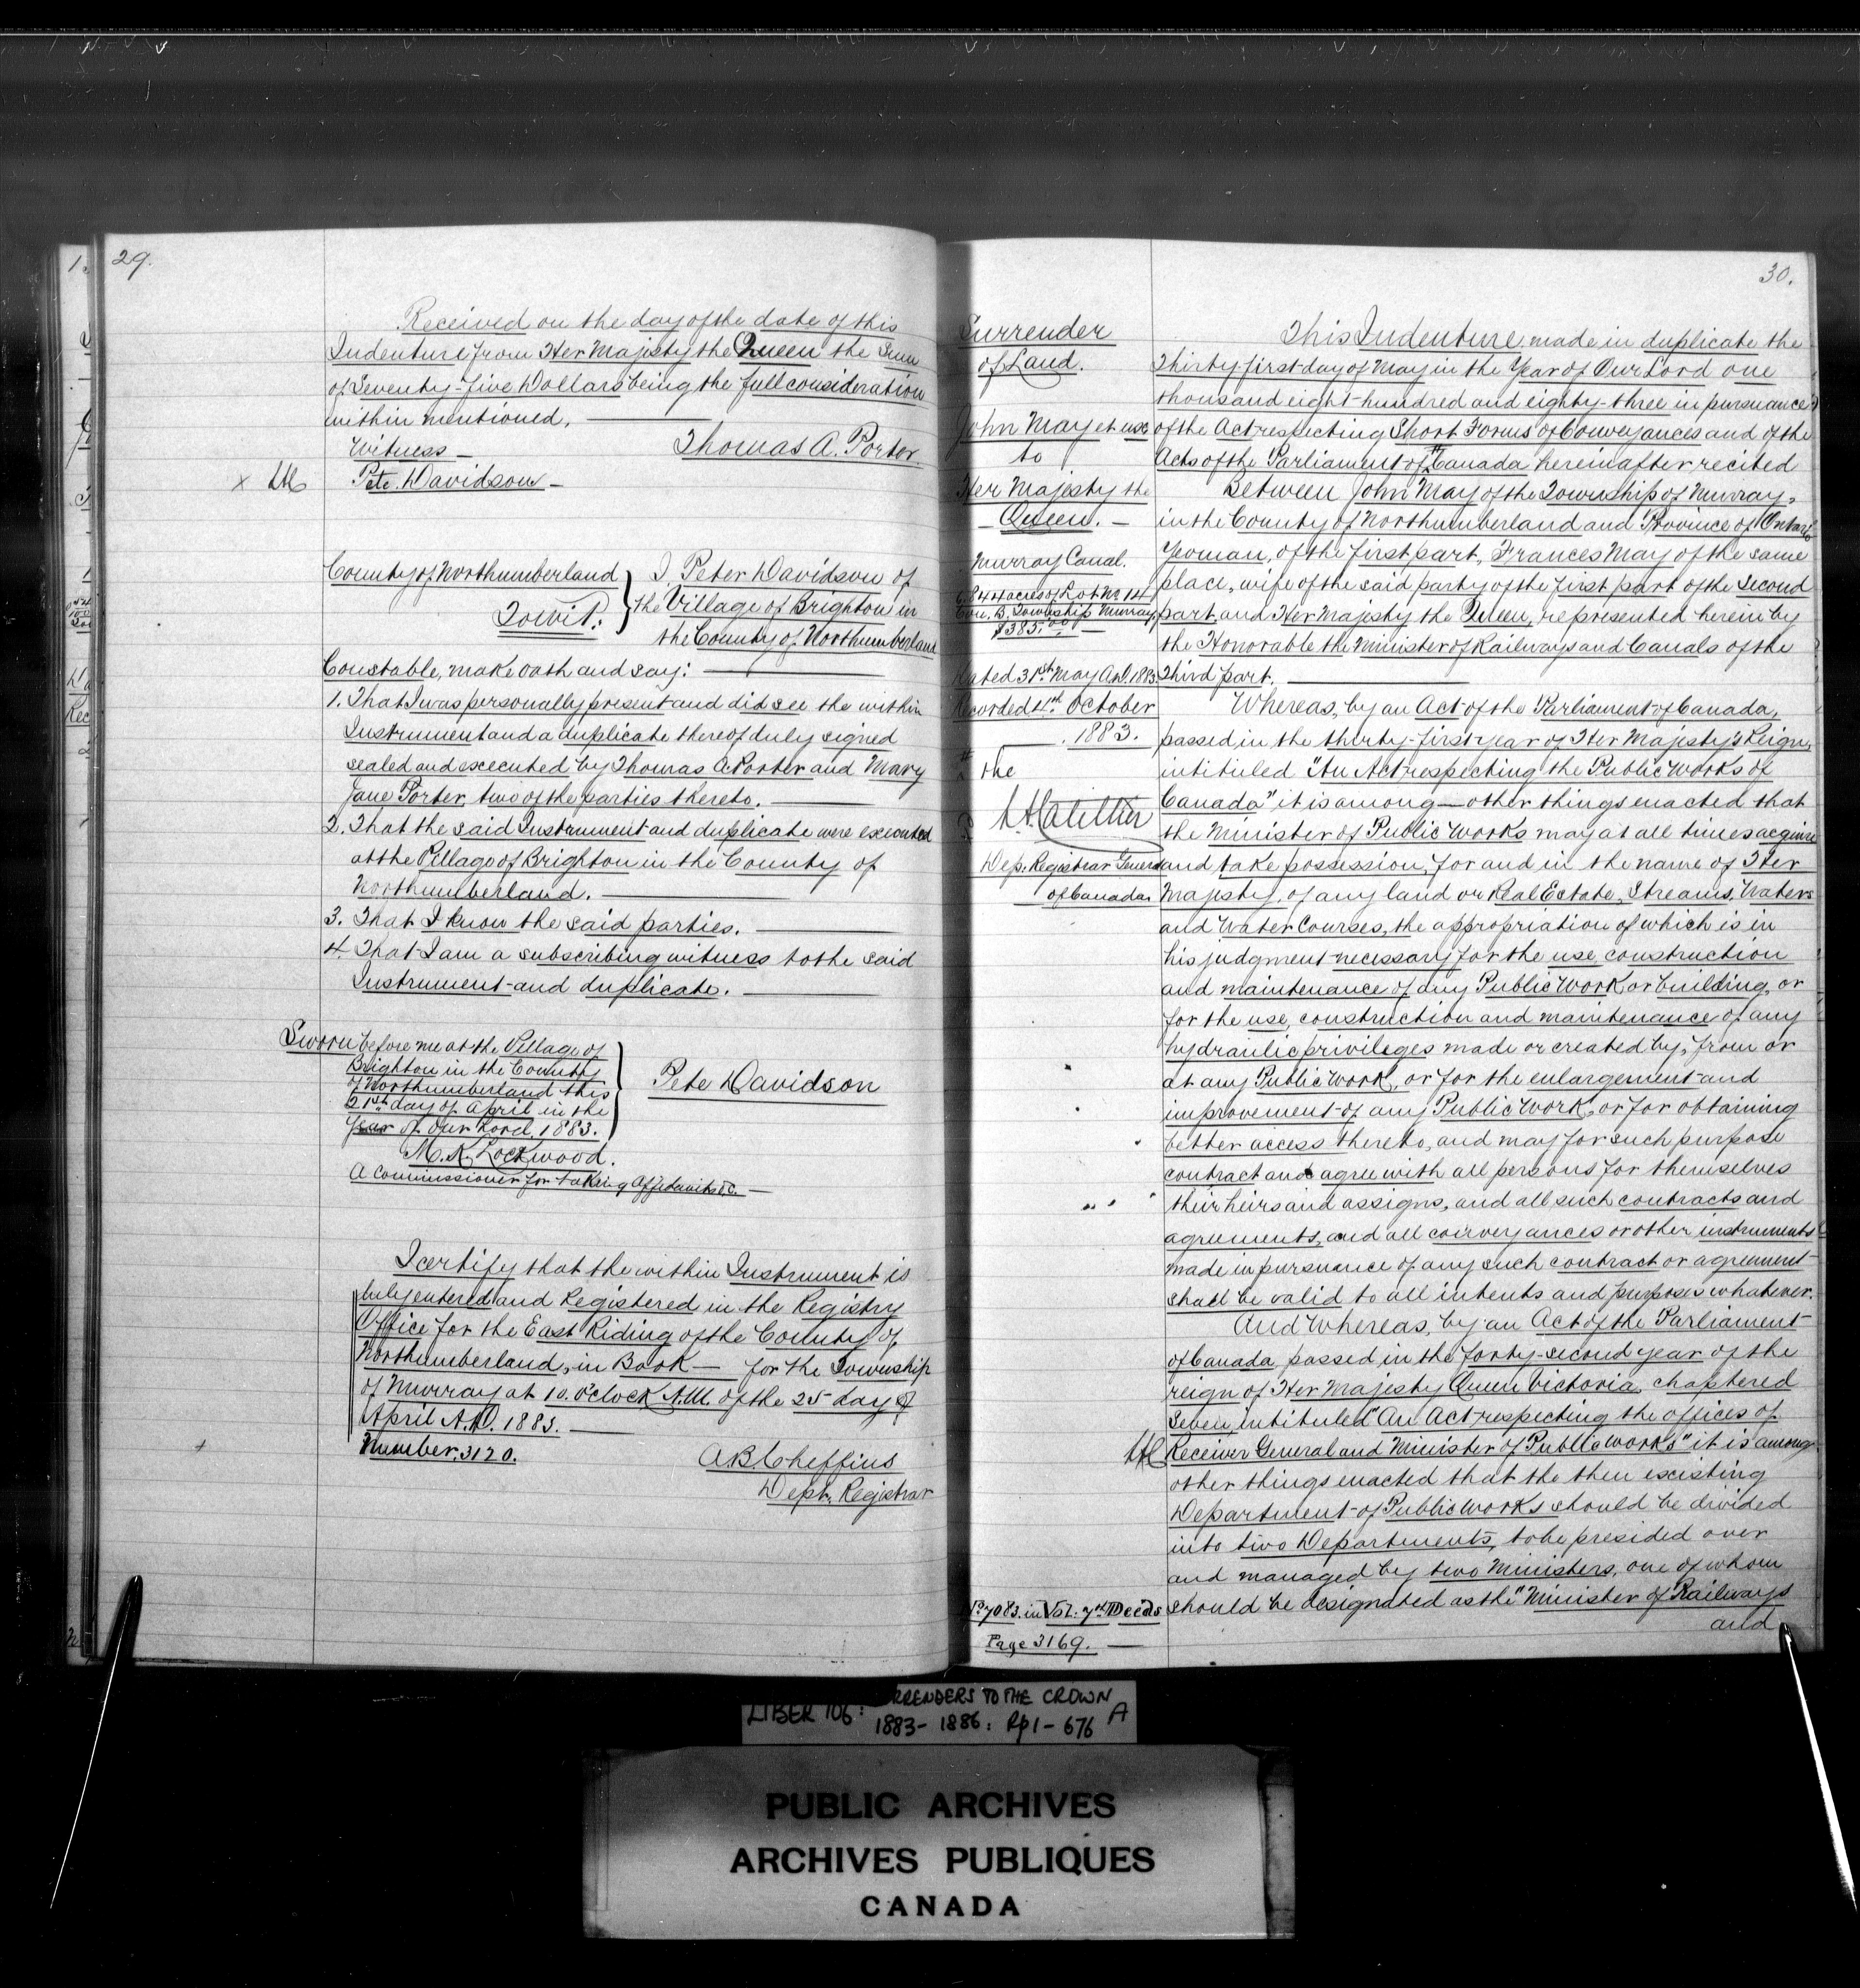 29.
Received on the day of the date of this
Indenture from Her Majesty the Queen the Sum
of Seventy-five Dollars being the full consideration
within mentioned.
Witness Thomas A. Porter.
x Pete. Davidson
County of Northumberland } I, Peter Davidson of
Towit: the Village of Brighton in
the County of Northumberland
Constable, make oath and say:
1. That I was personally present and did see the within
Instrument and a duplicate thereof duly signed
sealed and executed by Thomas A Porter and Mary
Jane Porter, two of the parties thereto.
2. That the said Instrument and duplicate were executed
at the Village of Brighton in the County of
Northumberland.
3. That I know the said parties.
4. That I am a subscribing witness to the said
Instrument and duplicate.
Sworn before me at the Village of
Brighton in the County
of Northumberland this
21st day of April in the
Year of Our Lord, 1883.
} Pete Davidson
M. K. Lockwood.
A Commissioner for taking Affidavits &c.
I certify that the within Instrument is
duly entered and Registered in the Registry
Office for the East Riding of the County of
Northumberland, in Book — for the Township
of Murray at 10. O'Clock A.M. of the 25 day of
April A.D. 1883.
Number. 3120.
A.B. Cheffins
Dept. Registrar
30.
Surrender
of Land.
John May et uxe
to
Her Majesty the
Queen.
Murray Canal.
6.844 acres of Lot No 14
Con. B. Township Murray.
$385.00
Dated 31st May A.D. 1883.
Recorded 11th October
1883.
the
Dep. Registrar General
of Canada
No 7083. in Vol: 7th Deeds
Page 3169.
This Indenture made in duplicate the
Thirty-first day of May in the Year of Our Lord one
thousand eight-hundred and eighty-three in pursuance
of the Act respecting Short Forms of Conveyances and of the
Acts of the Parliament of Canada hereinafter recited
Between John May of the Township of Murray,
in the County of Northumberland and Province of Ontario
Yeoman, of the first part, Frances May of the same
place, wife of the said party of the first part of the Second
part, and Her Majesty the Queen, represented herein by
the Honorable the Minister of Railways and Canals of the
Third part.
Whereas, by an Act of the Parliament of Canada,
passed in the thirty-first year of Her Majesty's Reign,
intituled "An Act respecting the Public Works of
Canada" it is among other things enacted that
the Minister of Public Works may at all times acquire
and take possession, for and in the name of Her
Majesty, of any land or Real Estate, Streams, Waters
and Water Courses, the appropriation of which is in
his judgment necessary for the use, construction
and maintenance of any Public Work, or building, or
for the use, construction and maintenance of any
hydraulic privileges made or created by, from or
at any Public Work, or for the enlargement and
improvement of any Public Work, or for obtaining
better access thereto, and may for such purpose
contract and agree with all persons for themselves
their heirs and assigns, and all such contracts and
agreements, and all conveyances or other instruments
made in pursuance of any such contract or agreement
shall be valid to all intents and purposes whatever.
And Whereas, by an Act of the Parliament
of Canada, passed in the forty-second year of the
reign of Her Majesty Queen Victoria, chaptered
Seven, intituled "An Act respecting the offices of
Receiver General and Minister of Public Works" it is among
other things enacted that the then existing
Department of Public Works should be divided
into two Departments, to be presided over
and managed by two Ministers, one of whom
should be designated as the "Minister of Railways
and
LIBER 106: RRENDERS TO THE CROWN
1883 - 1886: Pp 1 - 676 A
PUBLIC ARCHIVES
ARCHIVES PUBLIQUES
CANADA